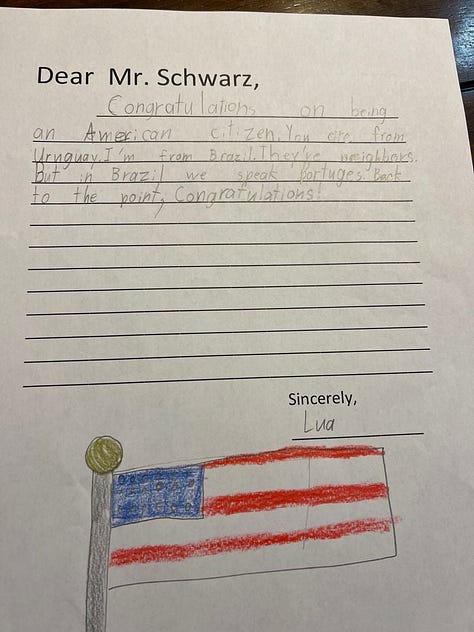 Dear Mr. Schwarz,
Congratulations on being
an American citizen. You are from
Uruguay. I'm from Brazil. They're neighbors.
But in Brazil we speak portuges. Back
to the point, Congratulations!
Sincerely,
Lua